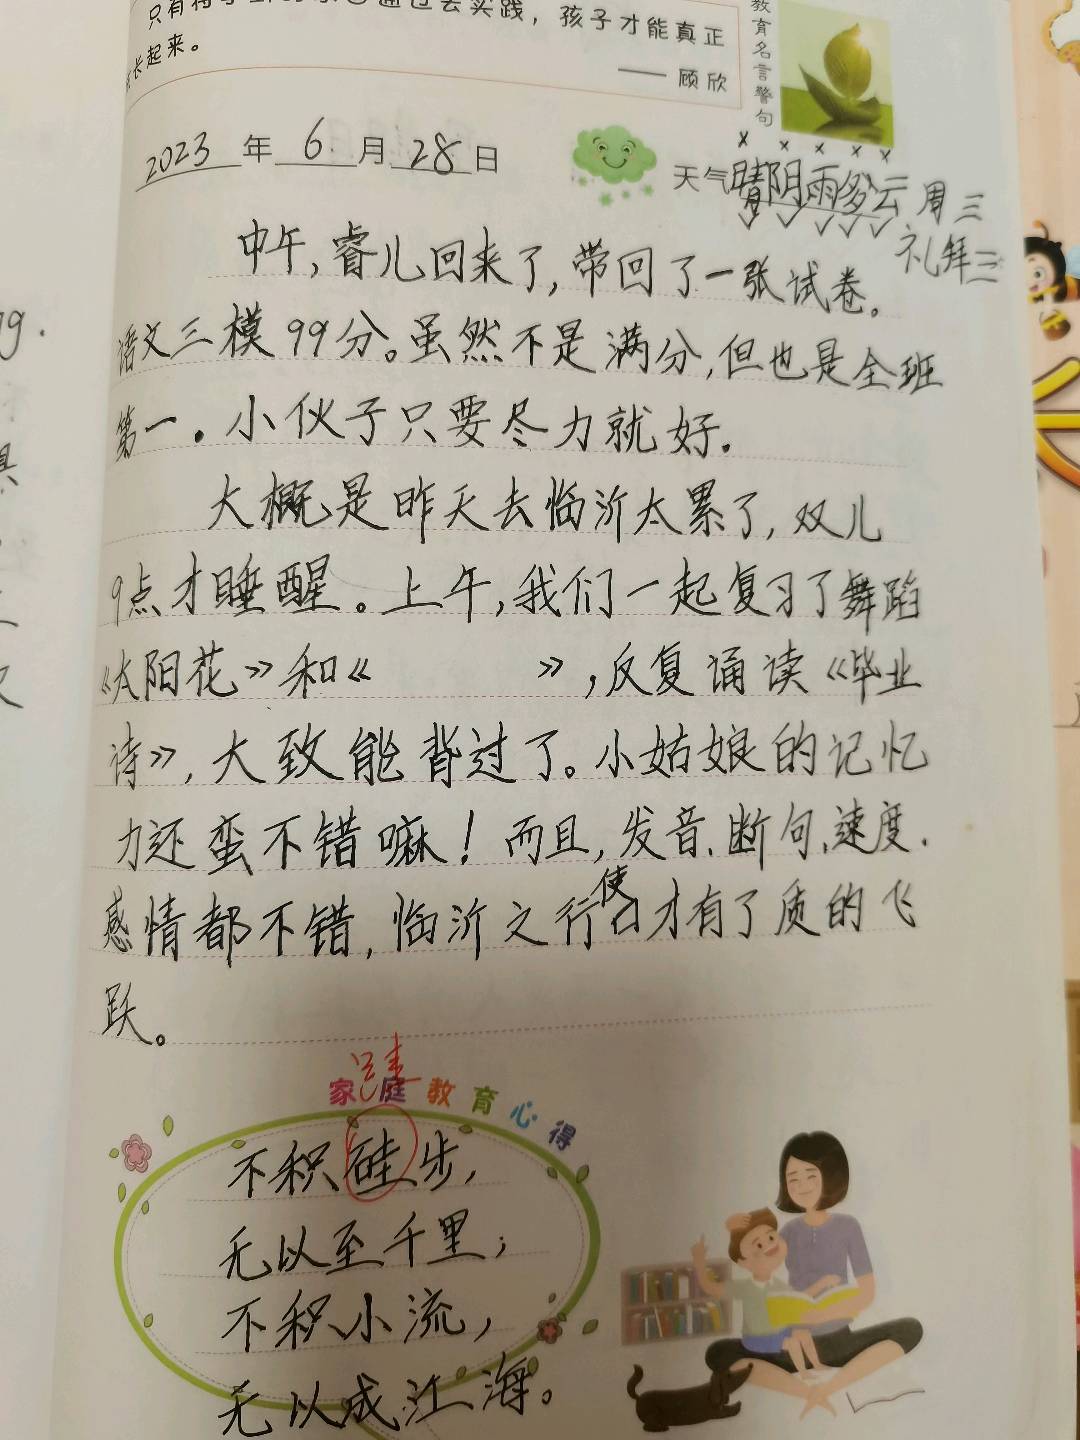 孩子才能真正
长起来。
—— 顾欣
教育名言警句
2023年6月28日
天气晴阴雨多云 周三
礼拜三
中午,睿儿回来了,带回了一张试卷。
语文三模99分。虽然不是满分,但也是全班
第一。小伙子只要尽力就好。
大概是昨天去临沂太累了,双儿
9点才睡醒。上午,我们一起复习了舞蹈
《太阳花》和《 》,反复诵读《毕业
诗》,大致能背过了。小姑娘的记忆
力还蛮不错嘛!而且,发音、断句、速度、
感情都不错,临沂之行使口才有了质的飞
跃。
跬
家庭教育心得
不积硅步,
无以至千里;
不积小流,
无以成江海。